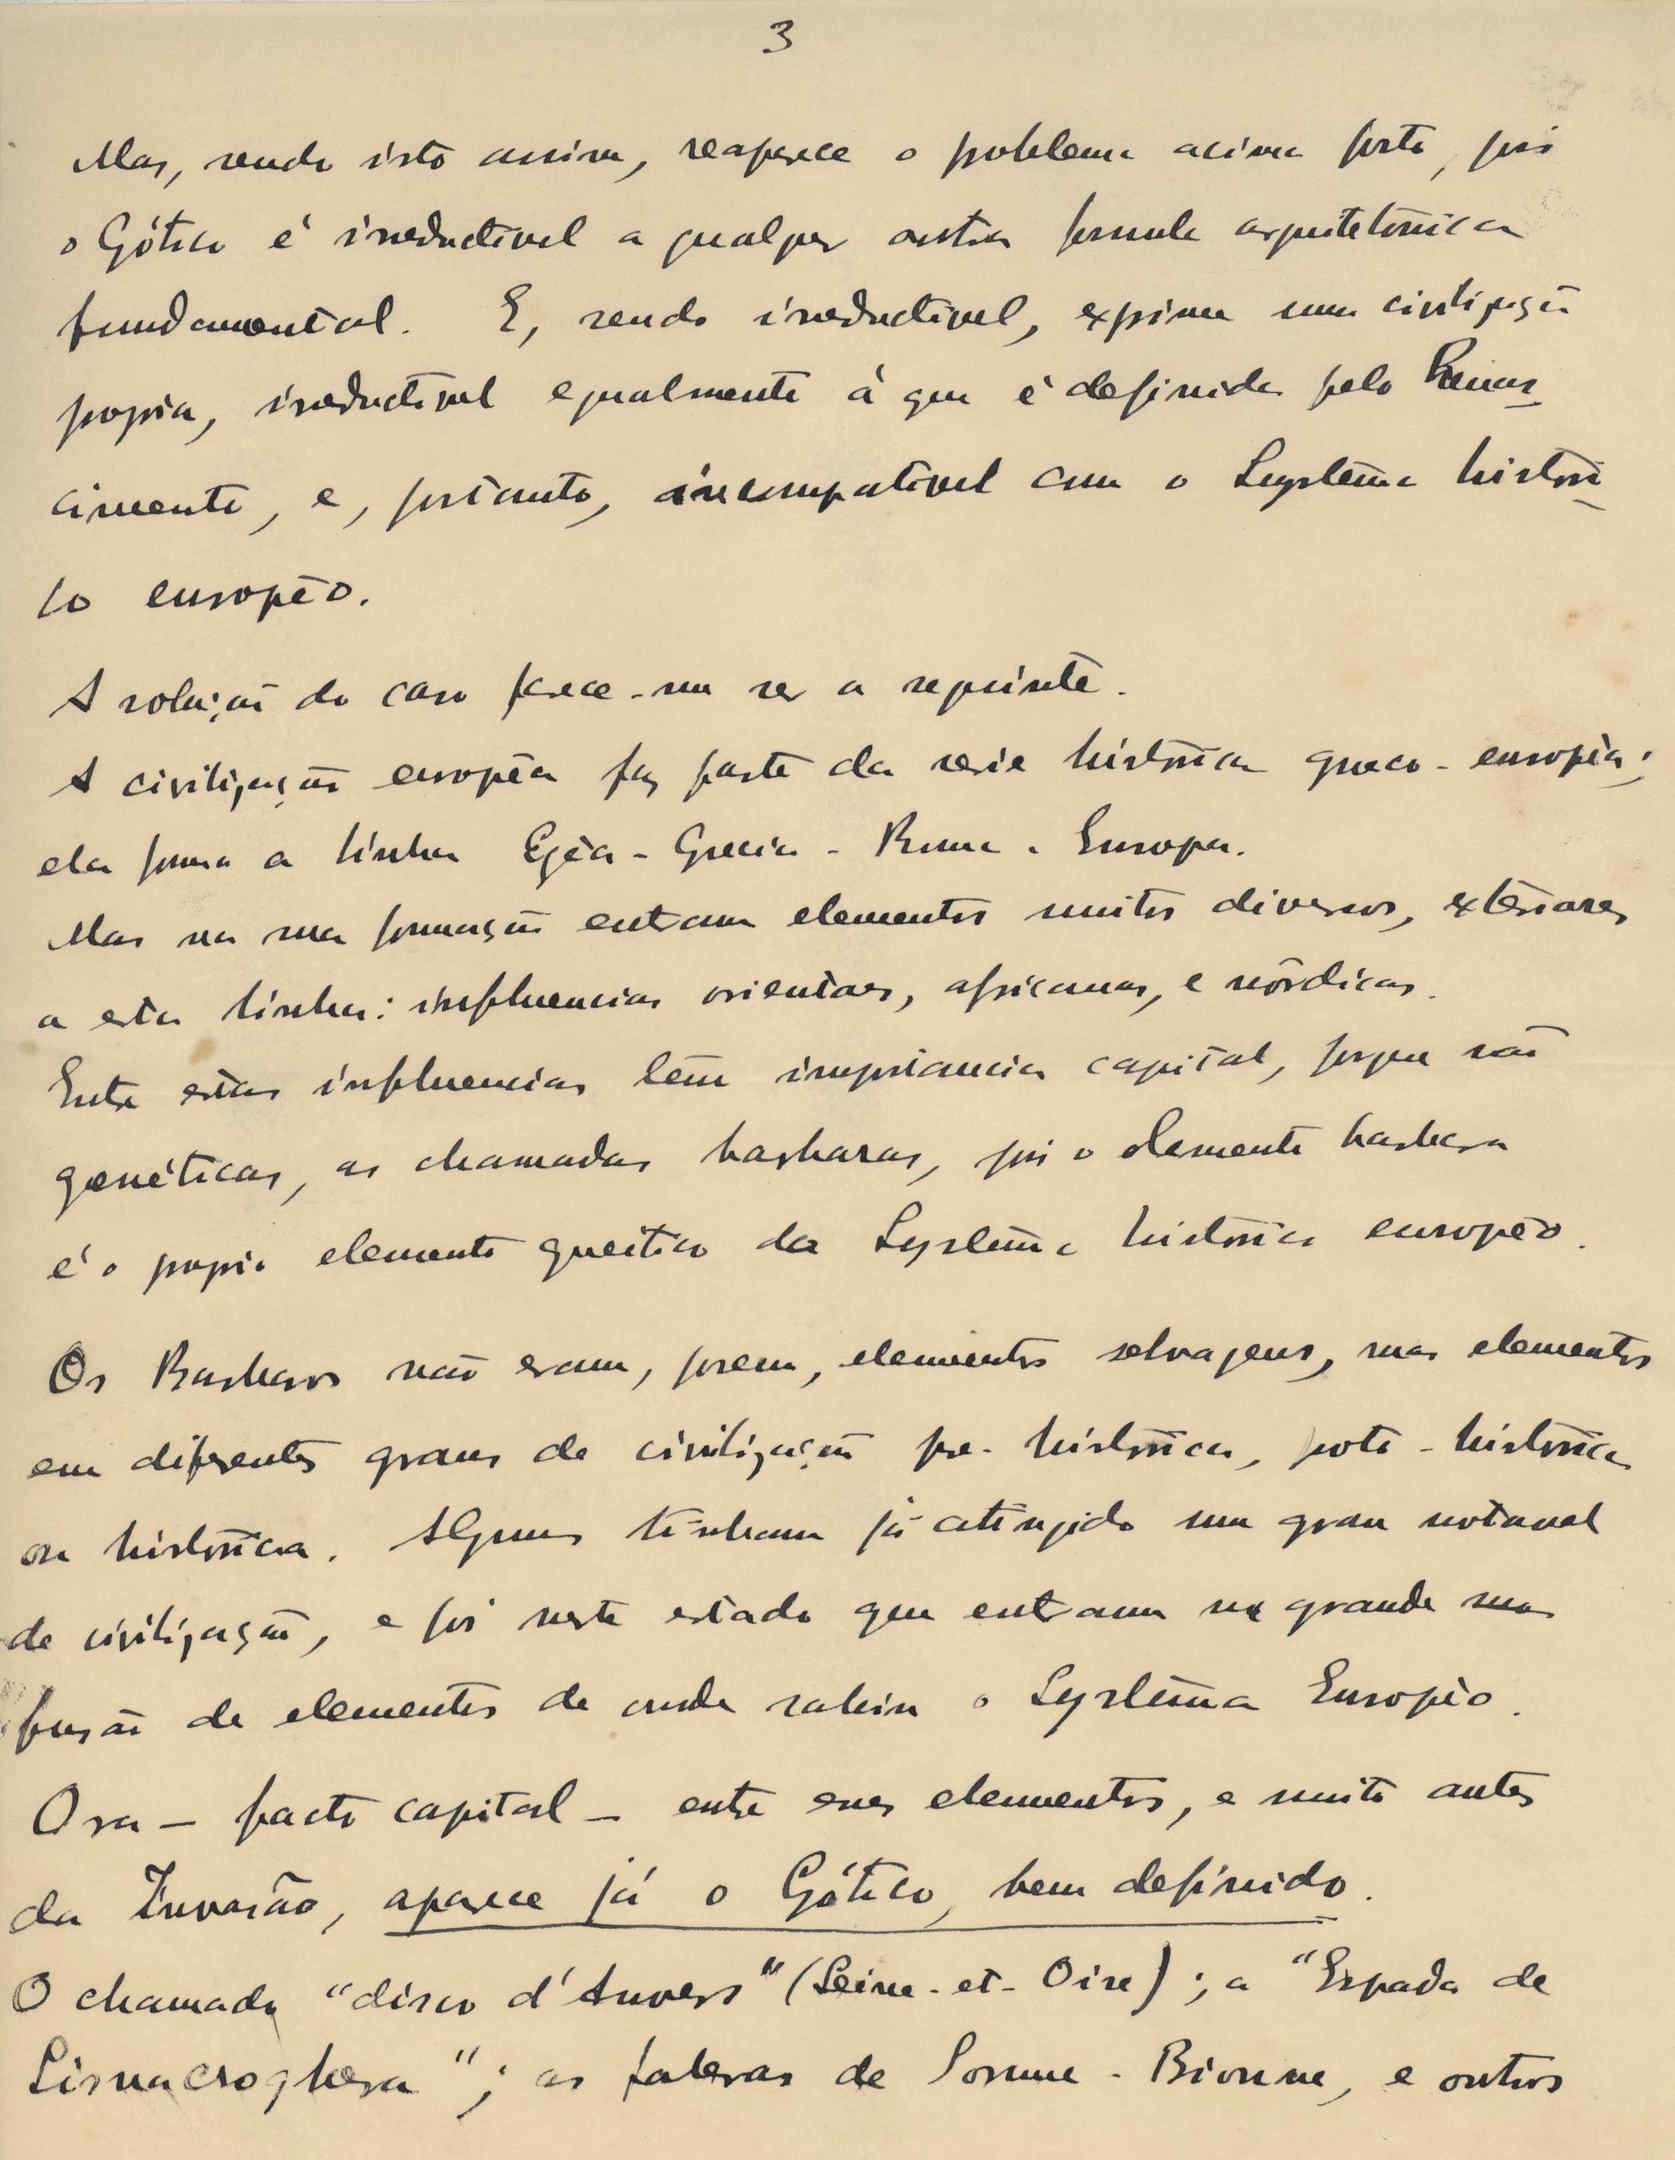 3
Mas, sendo isto assim, reaparece o problema acima posto, pois
o Gótico é irreductivel a qualquer outra formula arquitetónica
fundamental. E, sendo irreductivel, exprime uma civilização
propria, irreductivel egualmente á que é definida pelo Renas
cimento, e, portanto, incompativel com o Systema histori
co europeo.
A solução do caso parece-me ser a seguinte.
A civilização européa faz parte da serie histórica greco-européa;
ela forma a linha Egéa - Grecia - Roma - Europa.
Mas na sua formação entram elementos muitos diversos, exteriores
a esta linha: influencias orientaes, africanas, e nórdicas.
Entre estas influencias tem importancia capital, porque são
genéticas, as chamadas barbaras, pois o elemento barbaro
é o proprio elemento genetico do Systema historico europeo.
Os Barbaros não eram, porem, elementos selvagens, mas elementos
em diferentes graus de civilização pre-histórica, proto-histórica
ou histórica. Alguns tinham já atingido um grau notavel
de civilização, e foi neste estado que entraram na grande
fusão de elementos de onde sahiu o Systema Europeo.
Ora — facto capital — entre esses elementos, e muito antes
da Invasão, aparece já o Gótico, bem definido.
O chamado "disco d'Auvers" (Seine-et-Oise); a "Espada de
Lisnacroghera"; as faleras de Somme-Bionne, e outros